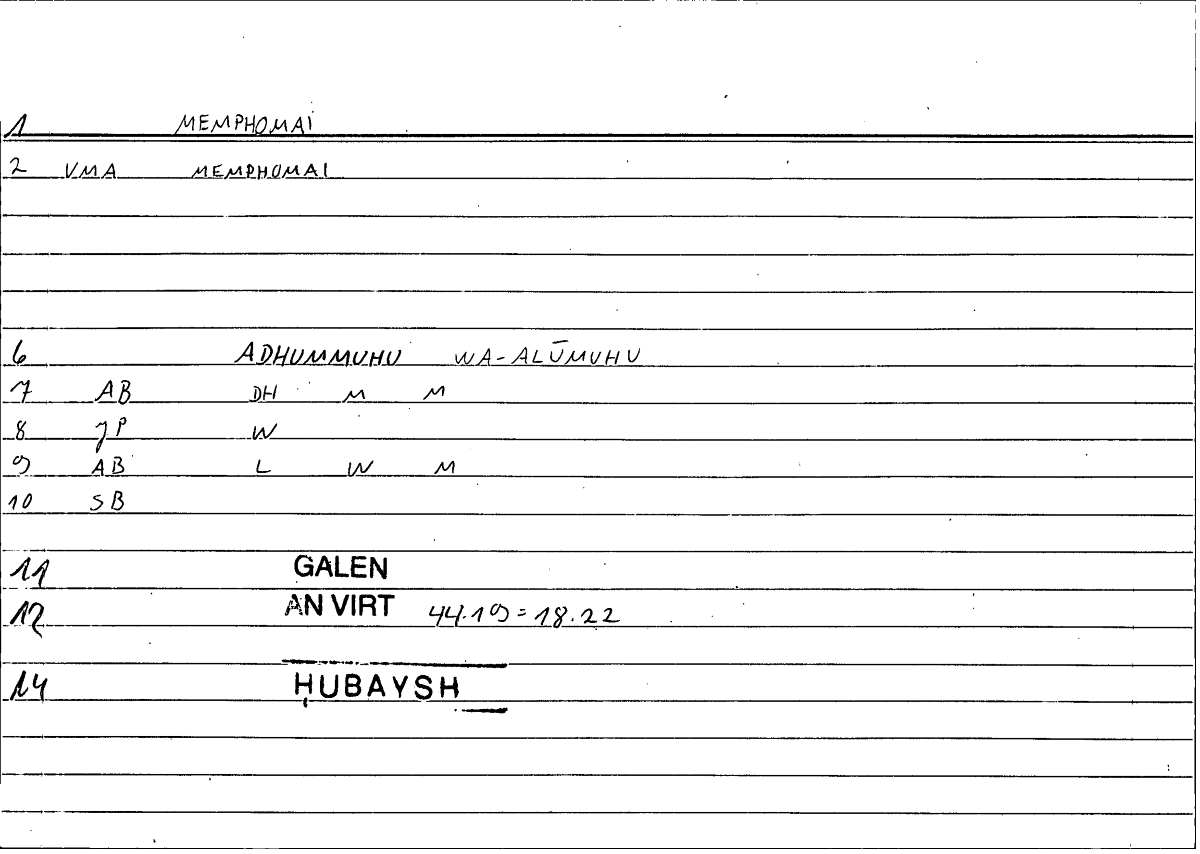 1 MEMPHOMAI
2 VMA MEMPHOMAI
6 ADHUMMUHU WA-ALŪMUHU
7 AB DH M M
8 JP W
9 AB L W M
10 SB
11 GALEN
12 AN VIRT 44.19=18.22
14 ḤUBAYSH